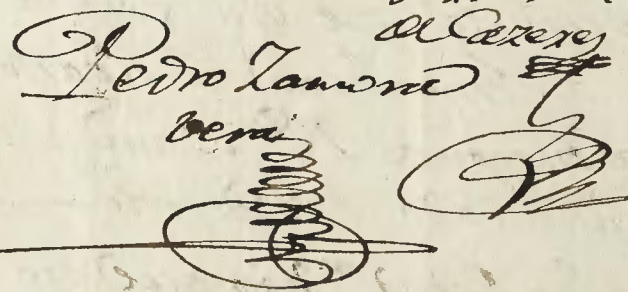 de Cazeres
Pedro Zamora
Vera